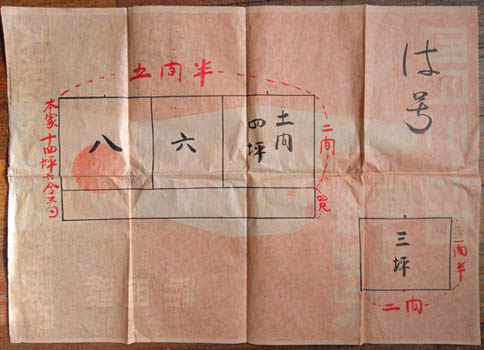 は号
五間半
土間
四坪
六
八
二間
四尺
本家 十四坪六合
三坪
一間半
二間